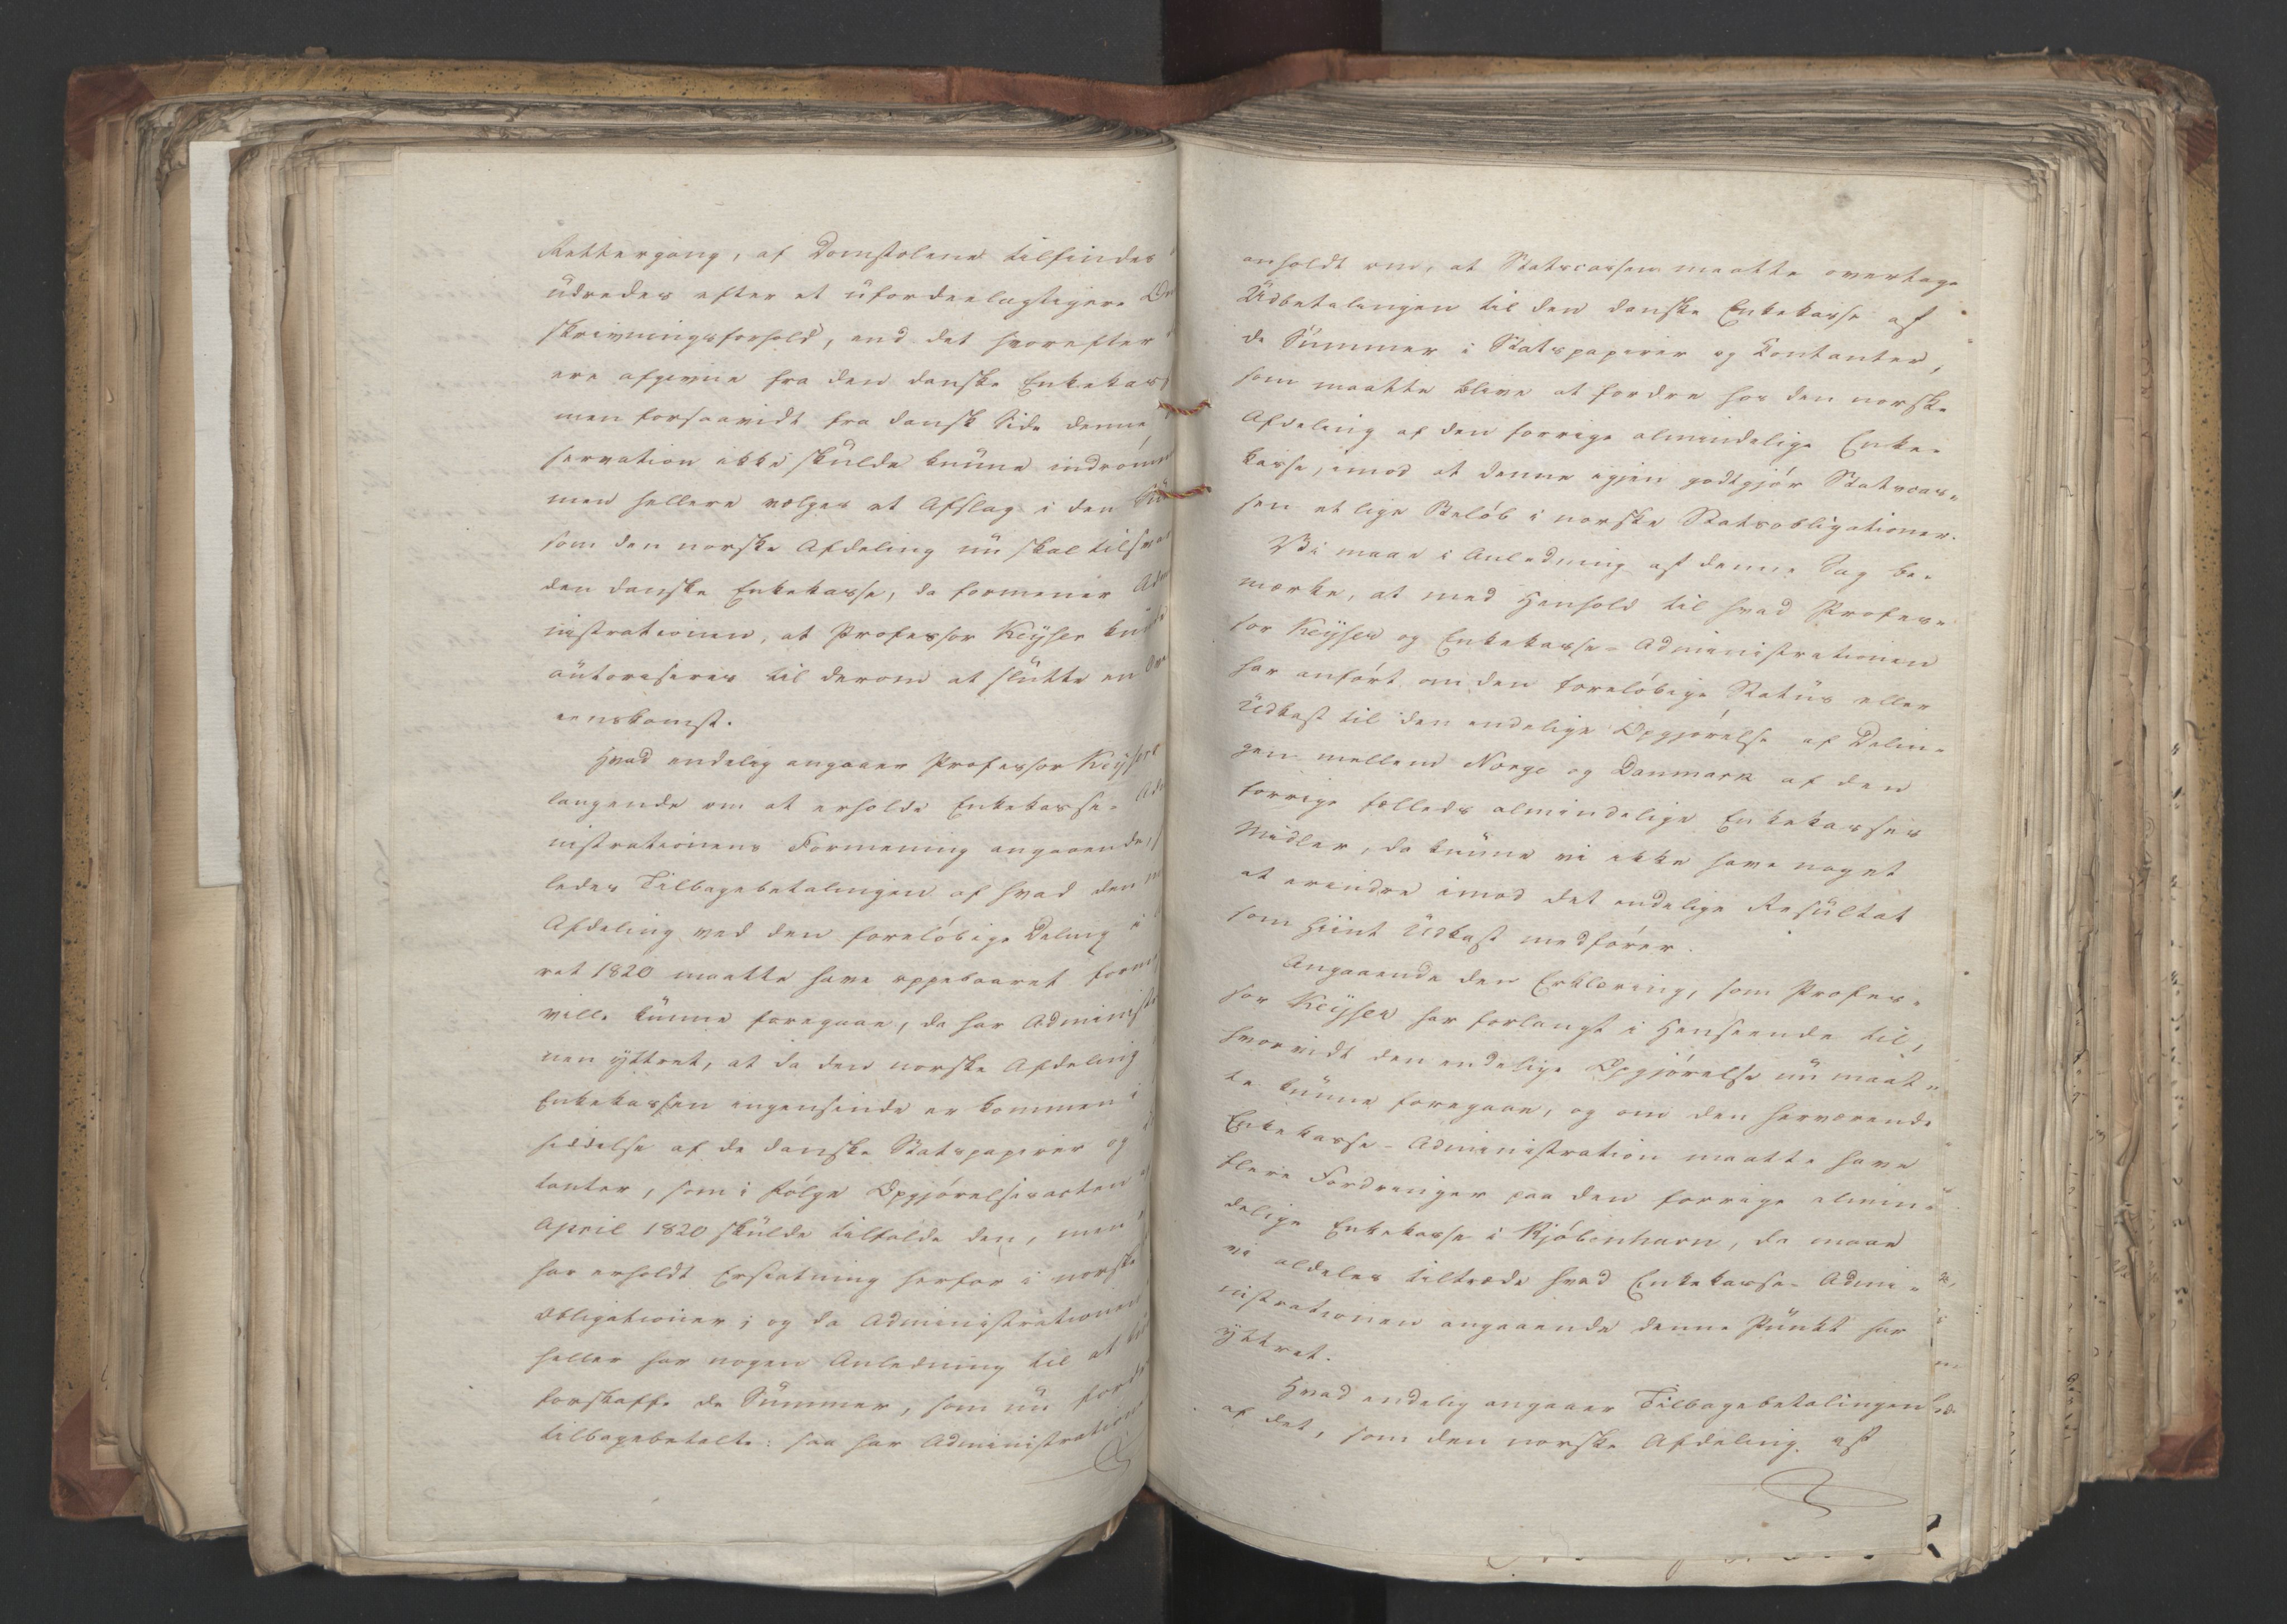 Rettergang, af Domstolene tilfindes
udredes efter et ufordeelagtigere
skrivningsforhold, end det hvorefter
ere afgivne fra den danske Enkekas
men forsaavidt fra dansk Side denne
servation ikke skulde kunne indrøm
men hellere vælges et Afslag i den
som den norske Afdeling nu skal tilsva
den danske Enkekasse, da formener Adm
nistrationen, at Professor Keyser kun
autoriseres til derom at slutte en Ov
eenskomst.
Hvad endelig angaaer Professor Keysers
langende om at erholde Enkekasse- Adm
nistrationens Formening angaaende,
ledes Tilbagebetalingen af hvad den no
Afdeling ved den foreløbige Deling i
ret 1820 maatte have oppebaaret forme
ville kunne foregaae, da har Administ
nen yttret, at da den norske Afdeling
Enkekassen ingensinde er kommen i
siddelse af de danske Statspapirer og
tanter, som i Følge Opgjørelsesacten
April 1820 skulde tilfalde den, men
har erholdt Erstatning herfor i norske
Obligationer; og da Administrationen
heller har nogen Anledning til at
forskaffe de Summer, som nu ford
tilbagebetalte: saa har Administration
anholdt om, at Statscassen maatte overtage
Udbetalingen til den danske Enkekasse af
de Summer i Statspapirer og Contanter,
som maatte blive at fordre hos den norske
Afdeling af den forrige almindelige Enke-
kasse, imod at denne igjen godtgjør Statscas-
sen et lige Beløb i norske Statsobligationer.
Vi maae i Anledning af denne Sag be-
mærke, at med Henhold til hvad Profes-
sor Keyser og Enkekasse-Administrationen
har anført om den foreløbige Status eller
Udkast til den endelige Opgjørelse af Delin-
gen mellem Norge og Danmark af den
forrige fælleds almindelige Enkekasses
Midler, da kunne vi ikke have noget
at erindre imod det endelige Resultat
som hiint Udkast medfører.
Angaaende den Erklæring, som Profes-
sor Keyser har forlangt i Henseende til,
hvorvidt den endelige Opgjørelse nu maat-
te kunne foregaae, og om den herværende
Enkekasse-Administration maatte have
flere Fordringer paa den forrige almin-
delige Enkekasse i Kjøbenhavn, da maae
vi aldeles tiltræde hvad Enkekasse-Admi-
nistrationen angaaende denne Punkt har
yttret.
Hvad endelig angaaer Tilbagebetalingen
af det, som den norske Afdeling af